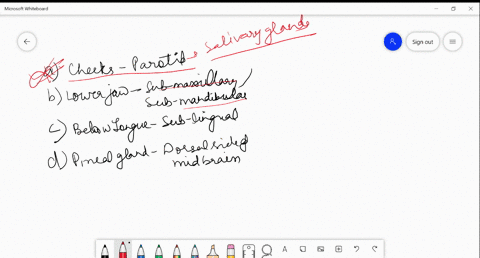 Microsoft Whiteboard
Sign out
Salivary glands
a) Cheeks - Parotid
b) Lower jaw - Sub-maxillary/
Sub-mandibular
c) Below Tongue - Sub-lingual
d) Pineal gland - Dorsal side of
midbrain